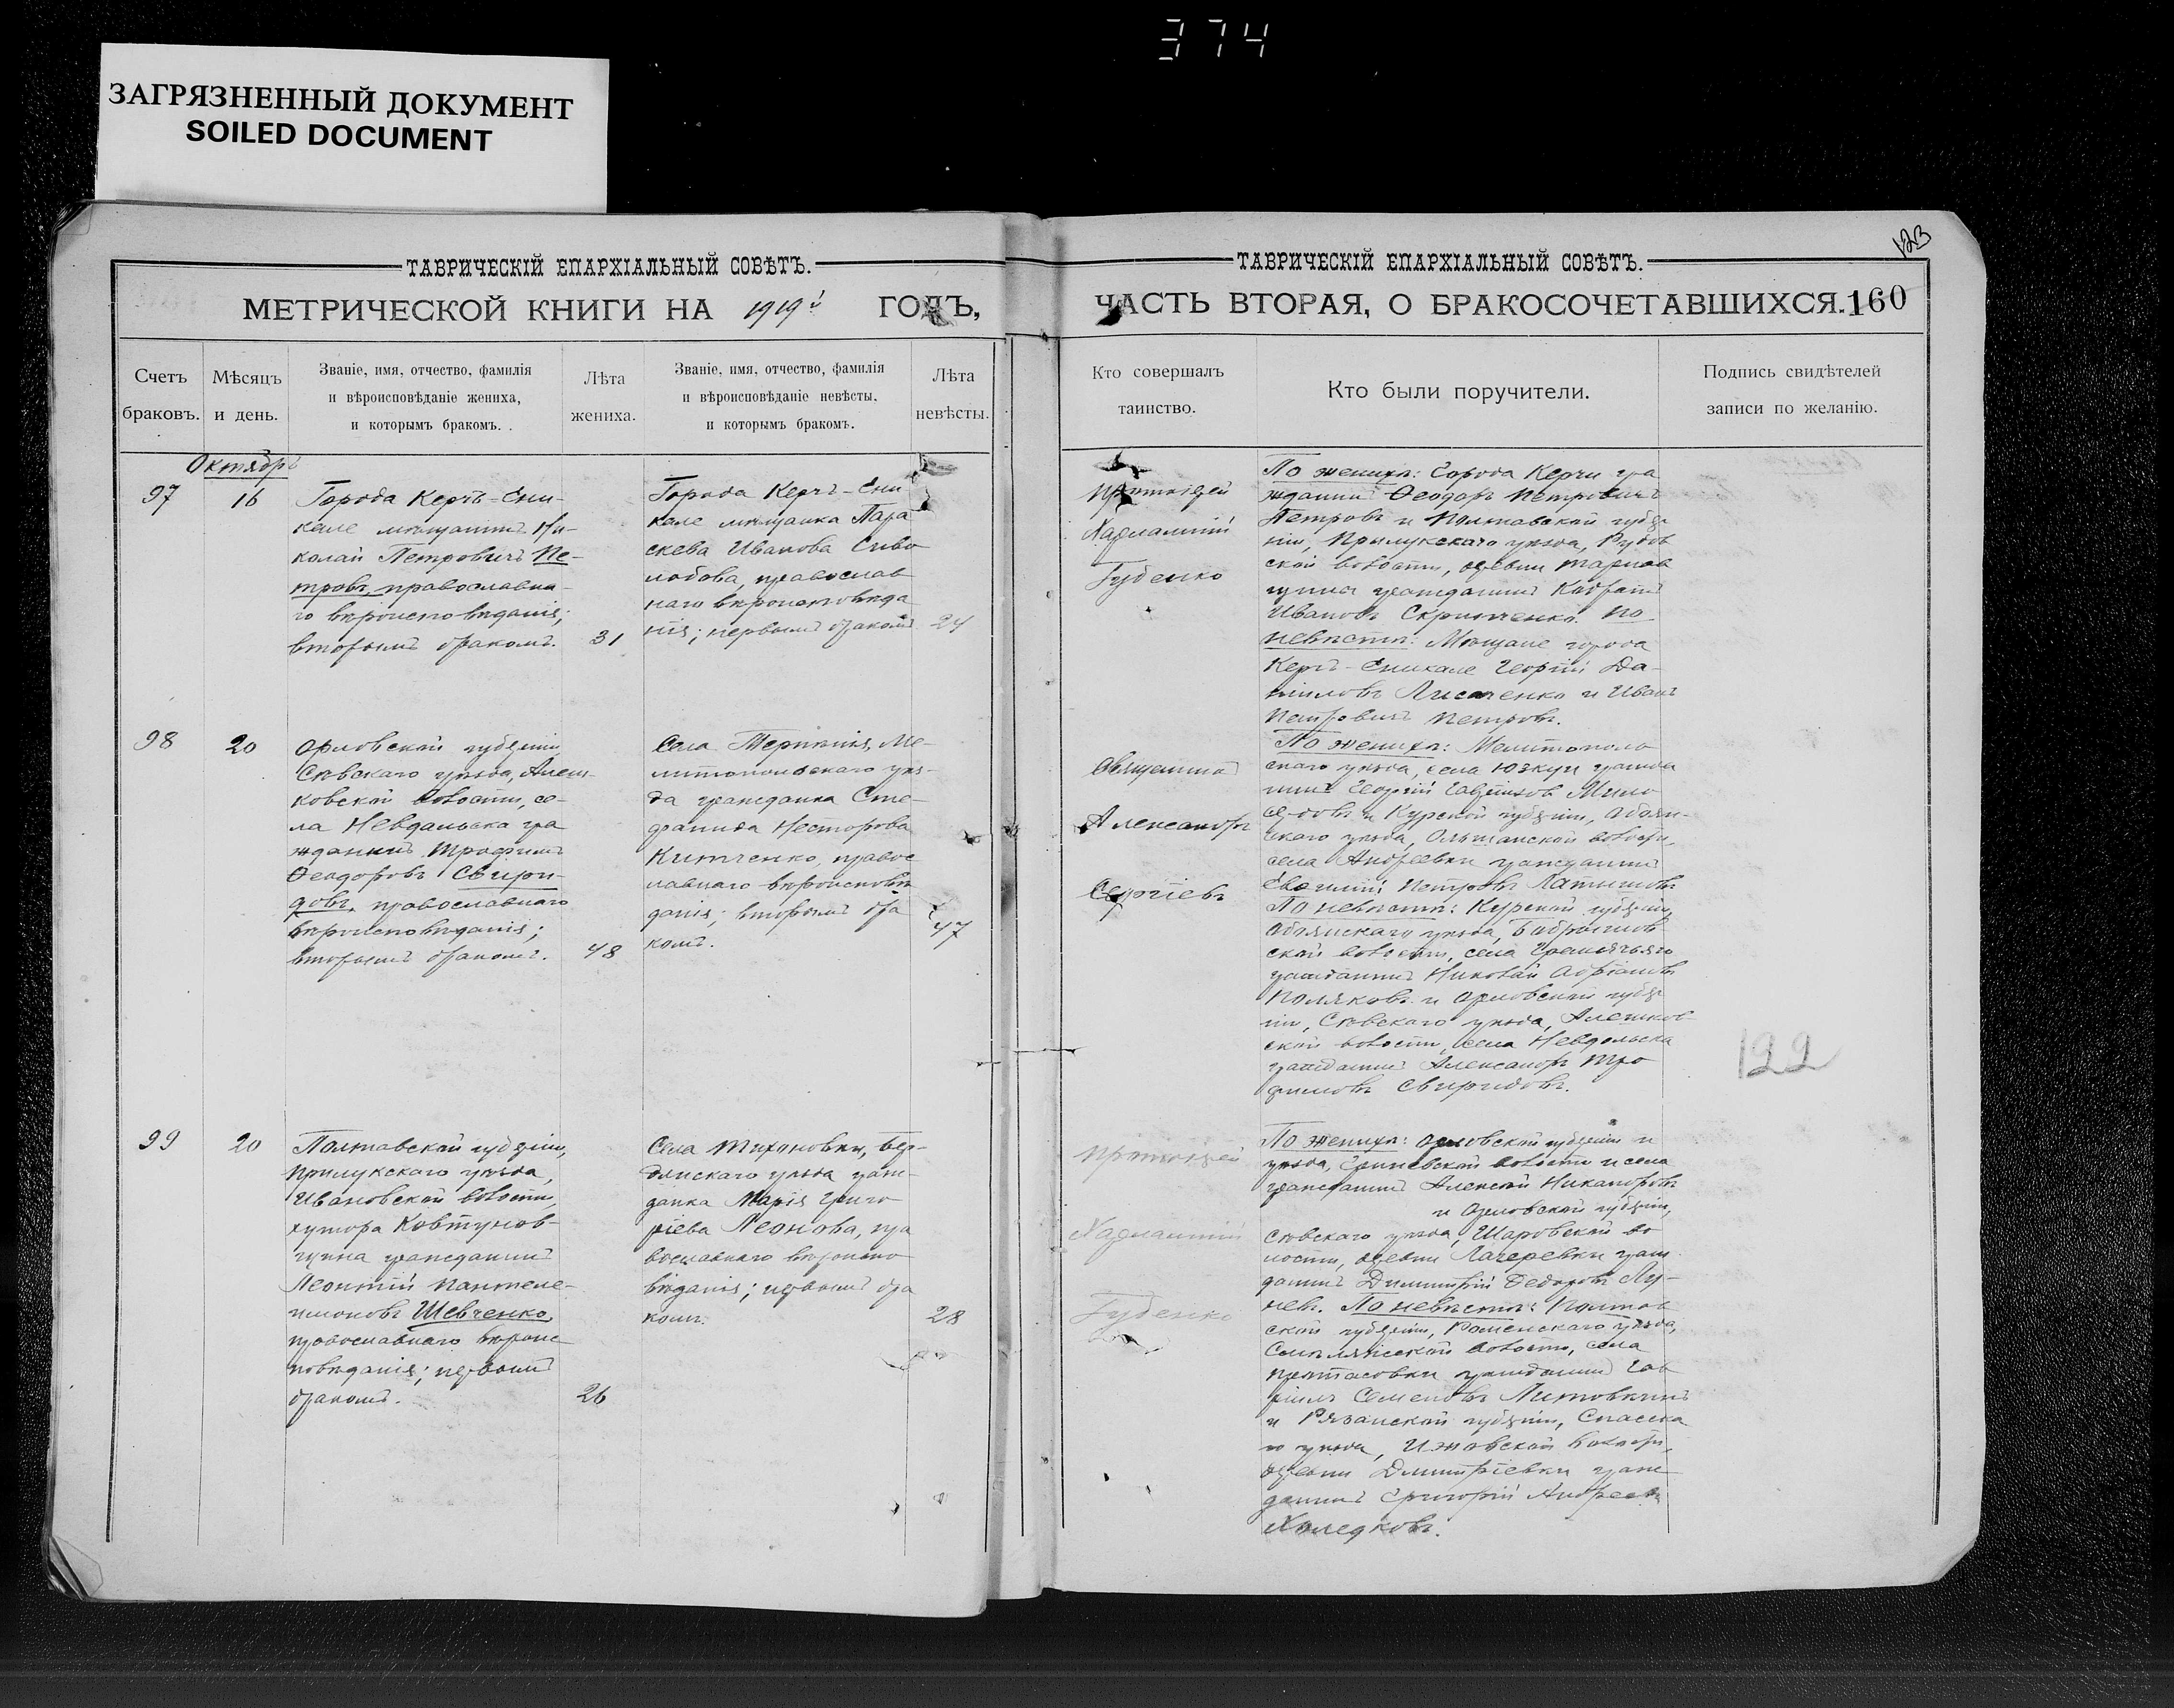 374
ЗАГРЯЗНЕННЫЙ ДОКУМЕНТ
SOILED DOCUMENT
ТАВРИЧЕСКІЙ ЕПАРХІАЛЬНЫЙ СОВѢТЪ.
МЕТРИЧЕСКОЙ КНИГИ НА 1919й ГОДЪ,
Счетъ
браковъ.
Мѣсяцъ
и день.
Званіе, имя, отчество, фамилія
и вѣроисповѣданіе жениха,
и которымъ бракомъ.
Лѣта
жениха.
Званіе, имя, отчество, фамилія
и вѣроисповѣданіе невѣсты,
и которымъ бракомъ.
Лѣта
невѣсты.
Октябрь
97
16
Города Керчь-Ени-
кале мѣщанинъ Ни-
колай Петровичъ Пе-
тровъ, православна-
го вѣроисповѣданія;
вторымъ бракомъ.
31
Города Керчь-Ени
кале мѣщанка Пара
скева Иванова Сиво
лобова, православ
наго вѣроисповѣда
нія; первымъ бракомъ
24
98
20
Орловской губерніи
Сѣвскаго уѣзда, Алеш-
ковской волости, се-
ла Невдольска гра
жданинъ Трофимъ
Ѳеодоровъ Свири-
довъ, православнаго
вѣроисповѣданія;
вторымъ бракомъ.
48
Села Терпѣнія, Ме-
литопольскаго уѣз-
да гражданка Сте-
фанида Несторова
Китченко, правос
лавнаго вѣроисповѣ
данія; вторымъ бра
комъ.
47
99
20
Полтавской губерніи,
Прилукскаго уѣзда,
Ивановской волости,
хутора Ковтунов-
щина гражданинъ
Леонтій Пантеле-
имоновъ Шевченко,
православнаго вѣроис
повѣданія; первымъ
бракомъ.
26
Села Тихоновки, Бер-
дянскаго уѣзда граж-
данка Марія Григо
ріева Леонова, пра
вославнаго вѣроиспо
вѣданія; первымъ бра
комъ.
28
123
ТАВРИЧЕСКІЙ ЕПАРХІАЛЬНЫЙ СОВѢТЪ.
ЧАСТЬ ВТОРАЯ, О БРАКОСОЧЕТАВШИХСЯ. 160
Кто совершалъ
таинство.
Кто были поручители.
Подпись свидѣтелей
записи по желанію.
Протоіерей
Харлампій
Гуденко
По женихѣ: Города Керчи гра
жданинъ Ѳеодоръ Петровичъ
Петровъ и Полтавской губер
ніи, Прилукскаго уѣзда, Рудов
ской волости, деревни Тарнов
щина гражданинъ Кодратъ
Ивановъ Скрипченко. По
невѣстѣ: Мѣщане города
Керчь-Еникале Георгій Да-
ніиловъ Лисаченко и Иванъ
Петровичъ Петровъ.
Священникъ
Александръ
Сергіевъ
По женихѣ: Мелитополь
скаго уѣзда, села Юзкуи гражда
нинъ Георгій Гавріиловъ Мило
седовъ и Курской губерніи, Обоян-
скаго уѣзда, Ольшанской волости,
села Андреевки гражданинъ
Евѳимій Петровъ Латышевъ
По невѣстѣ: Курской губерніи,
Обоянскаго уѣзда, Бобрышов
ской волости, села Гремячьяго
гражданинъ Николай Адріановъ
Поляковъ и Орловской губер
ніи, Сѣвскаго уѣзда, Алешков
ской волости, села Невдольска
гражданинъ Александръ Тро
фимовъ Свиридовъ.
122
Протоіерей
Харлампій
Гуденко
По женихѣ: Орловской губерніи и
уѣзда, волости и села
гражданинъ Алексѣй Никаноровъ
и Орловской губерніи,
Сѣвскаго уѣзда, Шаровской во
лости, деревни Лагеревки граж
данинъ Димитрій Ѳедоровъ Лу-
невъ. По невѣстѣ: Полтав
ской губерніи, Роменскаго уѣзда,
волости, села
Протасовки гражданинъ Гав
ріилъ Семеновъ Литовкинъ
и Рязанской губерніи, Спасска
го уѣзда, Ижевской волости,
деревни Димитріевки граж
данинъ Григорій Андреевъ
Холедковъ.